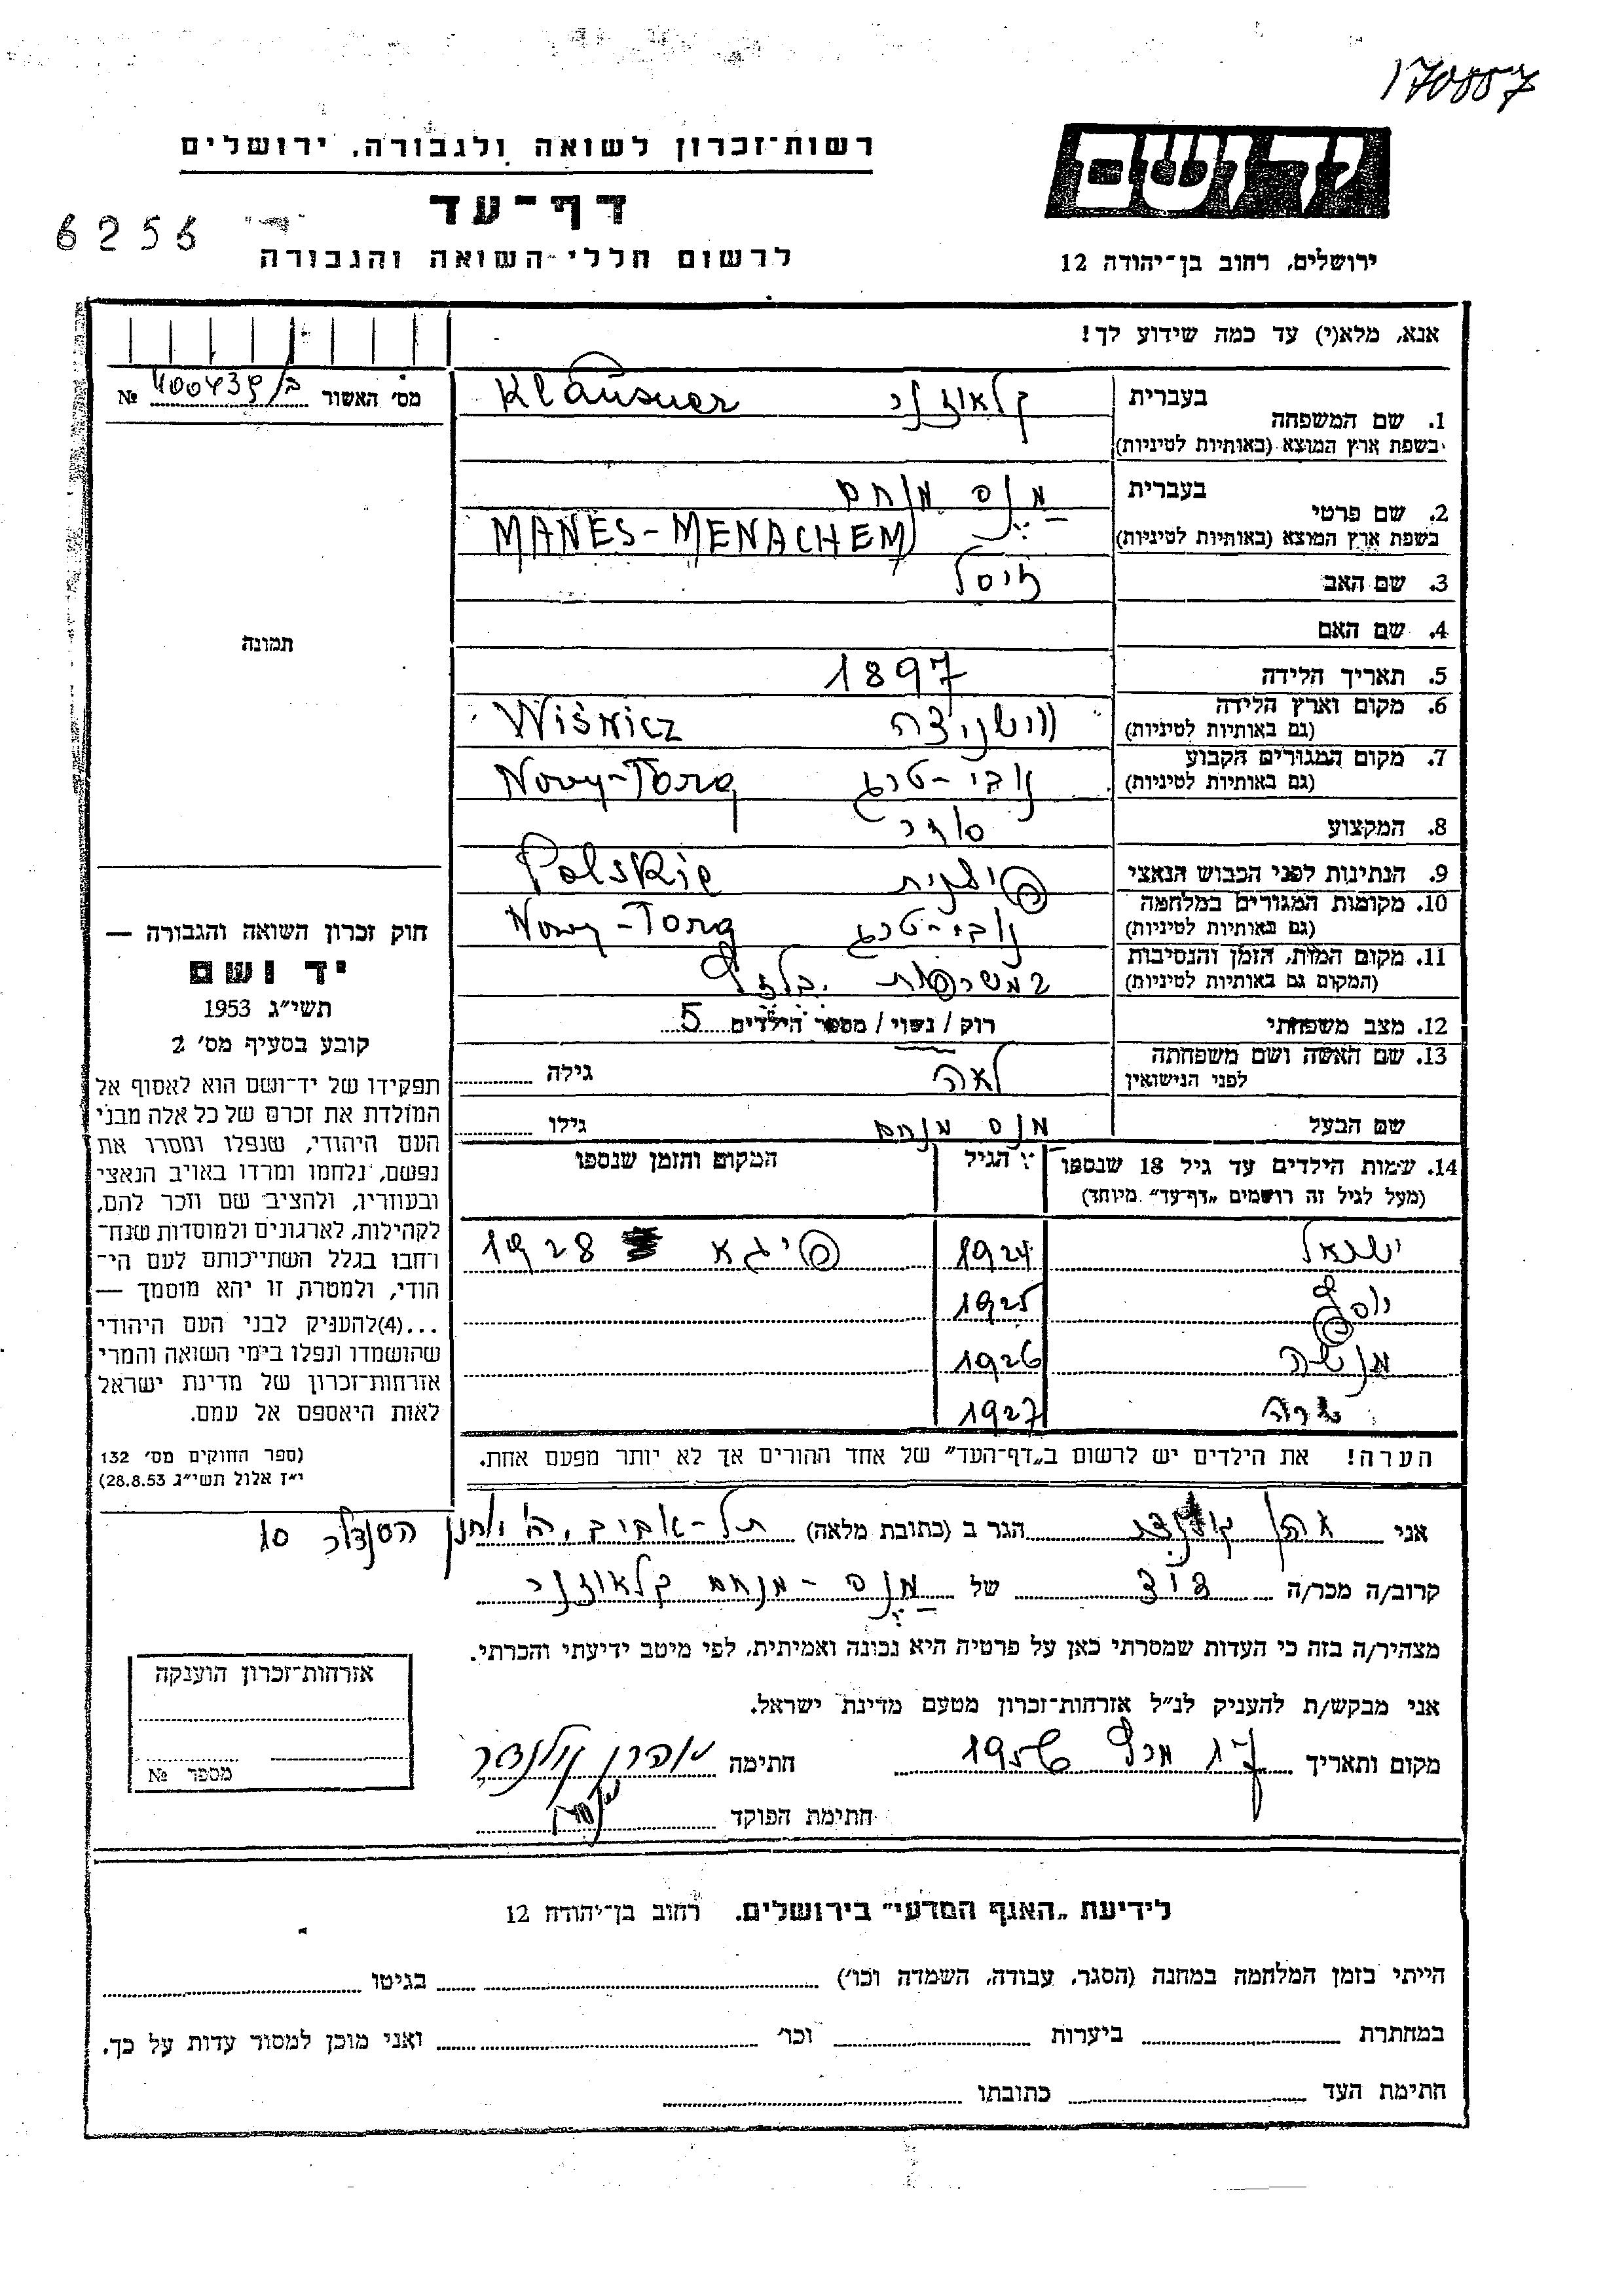 170887
יד ושם
רשות־זכרון לשואה ולגבורה, ירושלים
דף־עד
6256
לרשום חללי השואה והגבורה
ירושלים, רחוב בן־יהודה 12
אנא, מלא(י) עד כמה שידוע לך!
מס׳ האשור ב/400439 №
תמונה
1. שם המשפחה
בעברית קלאוזנר Klausner
בשפת ארץ המוצא (באותיות לטיניות)
2. שם פרטי
בעברית מנס מנחם
בשפת ארץ המוצא (באותיות לטיניות) MANES-MENACHEM
3. שם האב זיסל
4. שם האם
5. תאריך הלידה 1897
6. מקום וארץ הלידה (גם באותיות לטיניות) וושניצה Wiśnicz
7. מקום המגורים הקבוע (גם באותיות לטיניות) נובי-טרג Nowy-Torg
8. המקצוע סוחר
9. הנתינות לפני הכבוש הנאצי פולנית Polskie
10. מקומות המגורים במלחמה (גם באותיות לטיניות) נובי-טרג Nowy-Torg
11. מקום המות, הזמן והנסיבות (המקום גם באותיות לטיניות) במשרפות בלזץ
12. מצב משפחתי רוק / נשוי / מספר הילדים 5
13. שם האשה ושם משפחתה לפני הנישואין לאה גילה
שם הבעל מנס מנחם גילו
14. שמות הילדים עד גיל 18 שנספו הגיל המקום והזמן שנספו
(מעל לגיל זה רושמים „דף־עד” מיוחד)
ישראל 1924 פיגא 1928
יוסף 1925
מנשה 1926
שרה 1927
הערה! את הילדים יש לרשום ב„דף־העד” של אחד ההורים אך לא יותר מפעם אחת.
חוק זכרון השואה והגבורה —
יד ושם
תשי״ג 1953
קובע בסעיף מס׳ 2
תפקידו של יד־ושם הוא לאסוף אל
המולדת את זכרם של כל אלה מבני
העם היהודי, שנפלו ומסרו את
נפשם, נלחמו ומרדו באויב הנאצי
ובעוזריו, ולהציב שם וזכר להם,
לקהילות, לארגונים ולמוסדות שנח־
רחבו בגלל השתייכותם לעם הי־
הודי, ולמטרה זו יהא מוסמך —
...(4)להעניק לבני העם היהודי
שהושמדו ונפלו בימי השואה והמרי
אזרחות־זכרון של מדינת ישראל
לאות היאספם אל עמם.
(ספר החוקים מס׳ 132
י״ז אלול תשי״ג 28.8.53)
אני אהרן הגר ב (כתובת מלאה) תל-אביב, ר׳ יוחנן הסנדלר 10
קרוב/ה מכר/ה דוד של מנס - מנחם קלאוזנר
מצהיר/ה בזה כי העדות שמסרתי כאן על פרטיה היא נכונה ואמיתית, לפי מיטב ידיעתי והכרתי.
אני מבקש/ת להעניק לנ״ל אזרחות־זכרון מטעם מדינת ישראל.
מקום ותאריך 17 מרץ 1956 חתימה אהרן
חתימת הפוקד
אזרחות־זכרון הוענקה
מספר №
לידיעת „האגף המדעי” בירושלים. רחוב בן־יהודה 12
הייתי בזמן המלחמה במחנה (הסגר, עבודה, השמדה וכו׳) בגיטו
במחתרת ביערות וכו׳ ואני מוכן למסור עדות על כך.
חתימת העד כתובתו